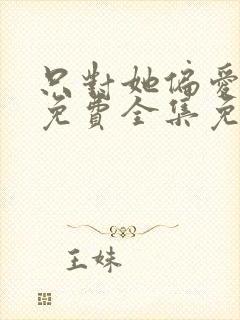 只對她偏愛
免費全集免
王妹